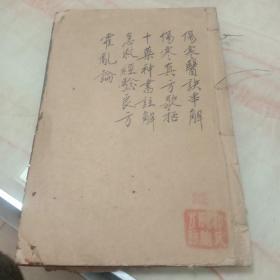 傷寒醫訣串解
傷寒真方歌括
十藥神書註解
急救經驗良方
霍亂論